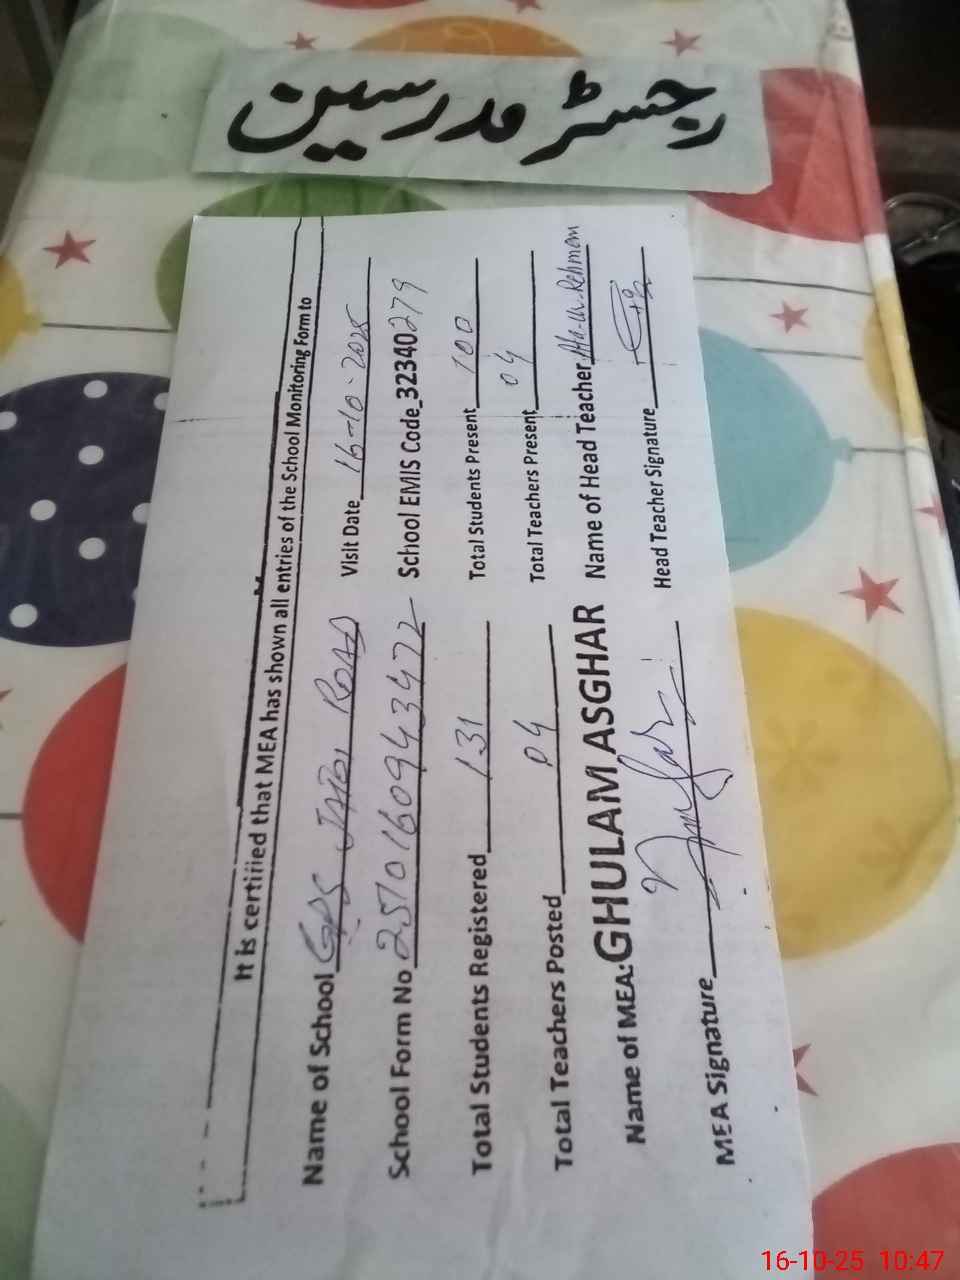 رجسٹر مدرسین
It is certified that MEA has shown all entries of the School Monitoring Form to
Name of School GPS JATOI ROAD Visit Date 16-10-2025
School Form No 2510160943472 School EMIS Code 32340279
Total Students Registered 131 Total Students Present 100
Total Teachers Posted 04 Total Teachers Present 04
Name of MEA: GHULAM ASGHAR Name of Head Teacher -ur-Rehman
MEA Signature Head Teacher Signature
16-10-25 10:47